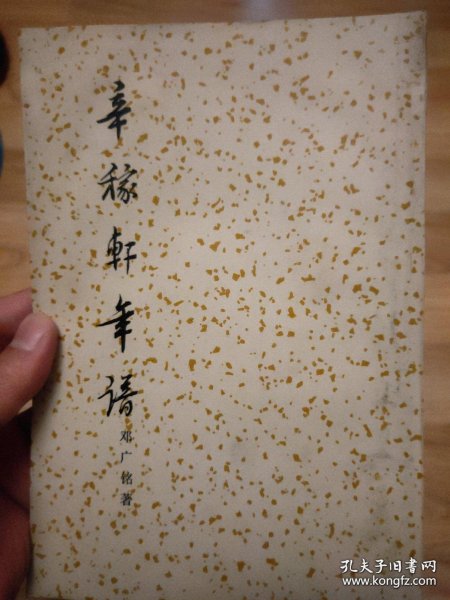 辛稼軒年譜
邓广铭著
孔夫子旧书网
www.kongfz.com